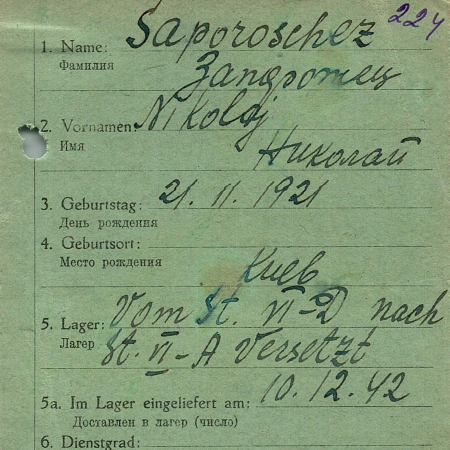 224
1. Name: Saporoschez
Фамилия Запорожец
2. Vornamen: Nikolaj
Имя Николай
3. Geburtstag: 21. 11. 1921
День рождения
4. Geburtsort:
Место рождения Киев
5. Lager: Vom St. VI-D nach
Лагер St. VI-A versetzt
5a. Im Lager eingeliefert am: 10.12.42
Доставлен в лагер (число)
6. Dienstgrad: